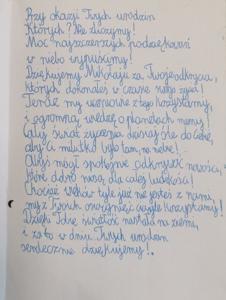 Przy okazji Twych urodzin
Których? Nie zliczymy!
Moc najszczerszych podziękowań
w niebo wypuścimy!
Dziękujemy Mikołaju za Twoje odkrycia,
których dokonałeś w czasie swego życia!
Teraz my wspólnie z tego korzystamy,
i ogromną wiedzę, o planetach mamy!
Cały świat życzenia dzisiaj śle do Ciebie,
abyś milutko było tam, na niebie!
Abyś mógł spokojnie odkrywać nowości,
które dobro niosą, dla całej ludzkości!
Chociaż wieków tyle już nie jesteś z nami,
my z Twoich osiągnięć ciągle korzystamy!
Dzięki Tobie światłość nastała na ziemi,
i za to w dniu Twych urodzin
serdecznie dziękujemy!